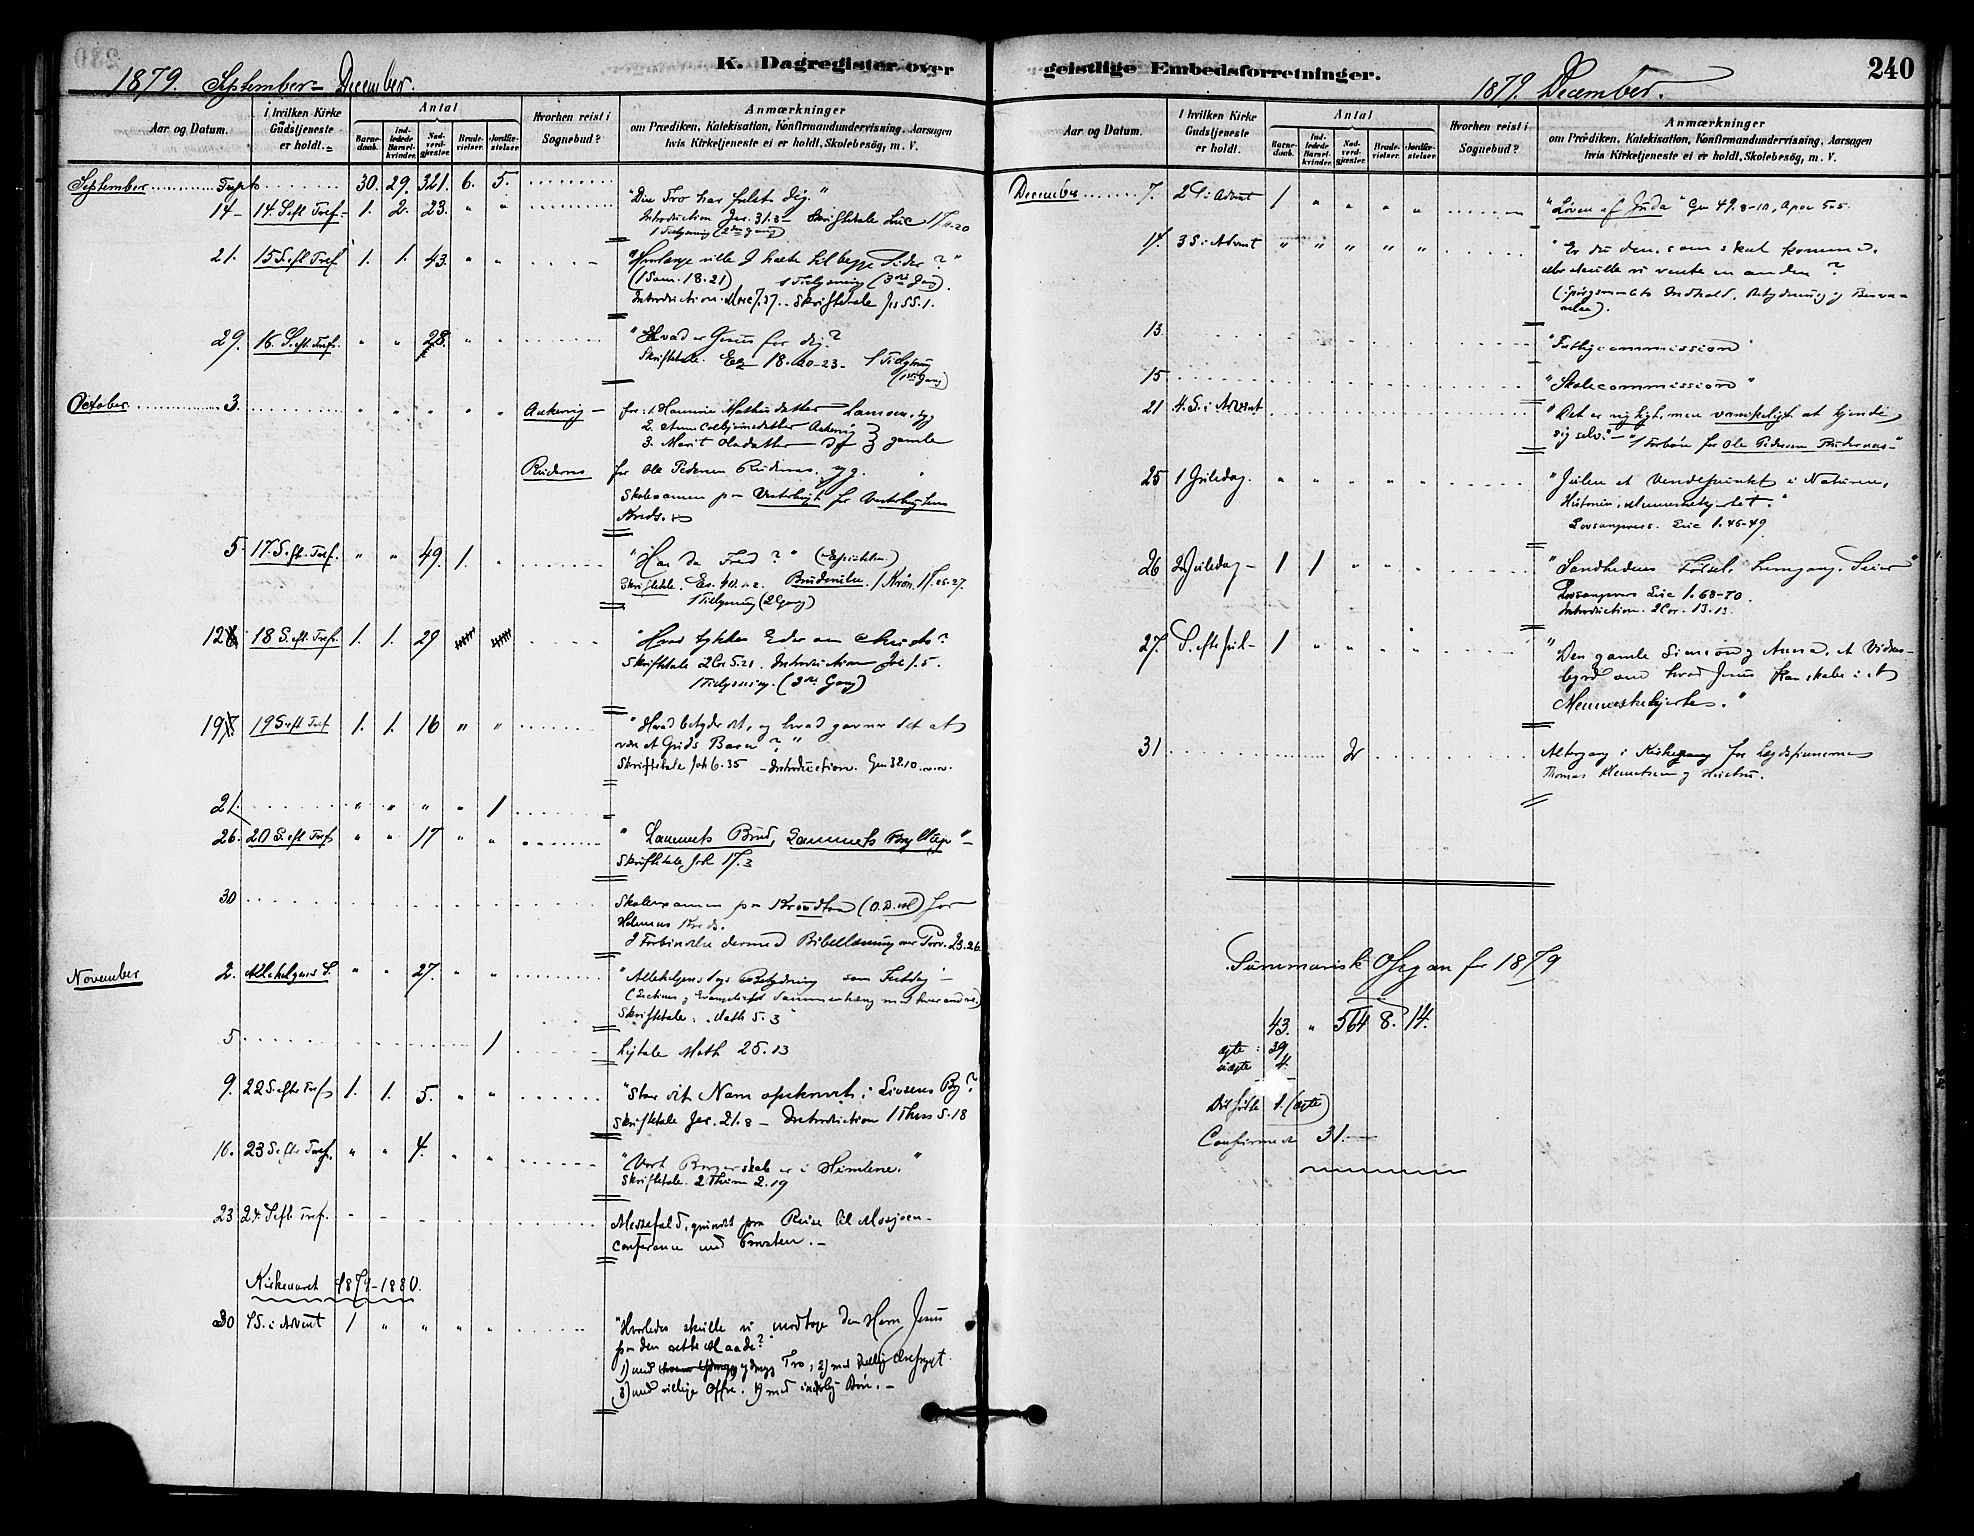 K. Dagregister over geistlige Embedsforretninger.
240
1879. September - December.
1879. December.
Aar og Datum.
I hvilken Kirke Gudstjeneste er holdt.
Antal
Barnedaab.
Indledede Barselkvinder.
Nadverdgjester.
Brudevielser.
Jordfæstelser.
Hvorhen reist i Sognebud?
Anmærkninger
om Prædiken, Katekisation, Konfirmandundervisning, Aarsagen
hvis Kirketjeneste ei er holdt, Skolebesög, m. V.
September 30. 29. 321. 6. 5.
14- 14 S. eft Tref. 1. 2. 23. " "
"Din Tro har frelst dig."
Introduction Jer. 31.3 - Skriftetale Luc 17
21. 15 S. eft Tref 1. 1. 43. " "
"Hvorlænge ville I halte til begge Sider?"
(1 Sam. 18.21) 1 Tillysning (3die Gang).
Introduction. Marc 7.37. - Skriftetale Jes 55.1.
29. 16 S. eft Tref. " " 28. " "
"Hvad er Jesus for dig?
Skriftetale. Ez 18. 20-23 - 1 Tillysning
(1ste Gang)
October 3. " " " " "
for: 1. Hanna
2. Anne
3. Marit Olsdatter gamle
Rudernes for Ole Pedersen Rudernes, syg.
Skoleexamen paa
Kreds.
5. 17. S. eft. Tref. " " 49. 1. "
"Har du Fred?" (Epistelen)
Skriftetale. Es. Brudevielse. 1 Krøn. 17.26-27.
1 Tillysning (2 Gang)
12 18 S. eft Tref. 1. 1. 29
"Hvad tykkes Eder om Christo?
Skriftetale 2 Cor 5.21. Introduction Joh 1.5.
1 Tillysning. (3die Gang)
19 19 S. eft Tref 1. 1. 16 " "
"Hvad betyder det, og hvad gavner det at
være et Guds Barn?"
Skriftetale Joh 6.35 - Introduction. Gen 32.10
21. " " " " 1
26. 20 S. eft Tref " " 17 " "
"Lammets Brud, Lammets Bryllup" -
Skriftetale, Joh 17.3
30
Skoleexamen paa for
Kreds.
I Forbindelse dermed Bibellæsning over Prov. 23.26.
November 2. Allehelgens S. " " 27. " "
"Allehelgensdags Betydning som Festdag" -
(Lectiens og Evangeliets Sammenhæng med hverandre)
Skriftetale. Math 5.3
5. 1
Ligtale Math 25.13
9. 22 S. efter Tref 1. 1. 5. " "
"Staar dit Navn opskrevet i Livsens Bog?
Skriftetale Jer. 21.8 - Introduction 1 Thess 5.18
16. 23 S. efter Tref. " " 4. " "
"Vort Borgerskab er i Himlene."
Skriftetale. 2 Thim 2.19
23 24. S eft Tref. - - - -
Messefald, grundet paa Reise til Mosjøen -
Conferance med Provsten. -
Kirkeaaret 1879-1880.
30 1 S. i Advent 1 " " " "
"Hvorledes skulle vi modtage den Herre Jesus
paa den rette Maade?"
1) med ydmyg Tro, 2) med hellig Ærefrygt
3) med villige Offre. 4) med inderlig Bøn. -
Aar og Datum.
I hvilken Kirke Gudstjeneste er holdt.
Antal
Barnedaab.
Indledede Barselkvinder.
Nadverdgjester.
Brudevielser.
Jordfæstelser.
Hvorhen reist i Sognebud?
Anmærkninger
om Prædiken, Katekisation, Konfirmandundervisning, Aarsagen
hvis Kirketjeneste ei er holdt, Skolebesög, m. V.
December 7. 2 S i Advent 1 " " " "
"Løven af Juda" Gen 49.8-10, Apoc 5.5.
14. 3 S i Advent " " " " "
"Er du den, som skal komme,
eller skulle vi vente en anden?
(Spørgsmaalets Indhold, Betydning og Besva-
relse).
13.
"Fattigcommission"
15
"Skolecommission"
21 4. S. i Advent
"Det er vigtigt, men vanskeligt at kjende
sig selv." - "1 Forbøn for Ole Pedersen Rudernes"
25 1 Juledag. " " " " "
"Julen et Vendepunkt i Naturen,
Historien, Menneskehjertet."
Lovsangsvers. Luc 1.46-49
26 2 Juledag - 1 1 " " "
"Sandhedens Fødsel, Fremgang, Seier"
Lovsangsvers Luc 1.68-70.
Introduction. 2 Cor. 13.13.
27. S. efter Jul - 1 " " " "
"Den gamle Simeon og Anna, et Vidnes-
byrd om hvad Jesus kan skabe i et
Menneskehjerte."
31 2
Altergang i for
Thomas Klemetsen og Hustru.
Summarisk Opgav for 1879
43. " 564 8. 14.
ægte: 39
uægte 4.
Dødfødte 1. (ægte)
Confirmede 31.